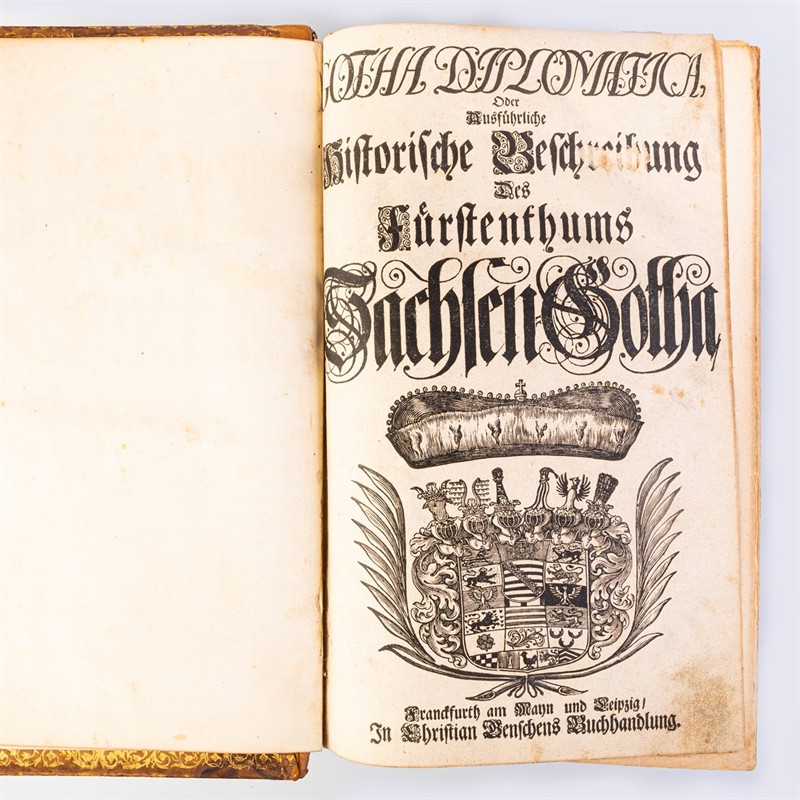 GOTHA DIPLOMATICA,
Oder
Ausführliche
Historische Beschreibung
Des
Fürstenthums
Sachsen-Gotha,
Franckfurth am Mayn und Leipzig/
In Christian Wenschens Buchhandlung.